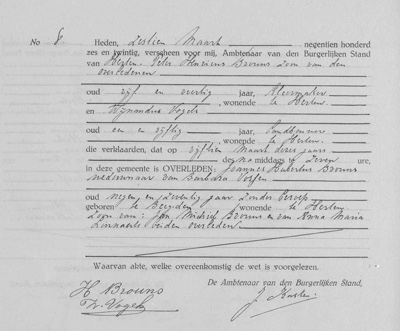 No 8. Heden, zestien Maart negentien honderd
zes en twintig, verscheen voor mij, Ambtenaar van den Burgerlijken Stand
van Herten. Peter Henricus Brouns zoon van den
overledenen
oud vijf en veertig jaar,
, wonende te Herten
en Wijnandus Vogels
oud een en vijftig jaar, Landbouwer
, wonende te Herten.
die verklaarden, dat op vijftien Maart dezes jaars
des namiddags te zeven ure,
in deze gemeente is OVERLEDEN: Joannes Hubertus Brouns
weduwnaar van Barbara
oud negen en zeventig jaar zonder beroep
geboren te wonende te Herten
Zoon van: Jan Brouns en van Anna Maria
beiden overleden.
Waarvan akte, welke overeenkomstig de wet is voorgelezen.
De Ambtenaar van den Burgerlijken Stand,
H Brouns
W. Vogels